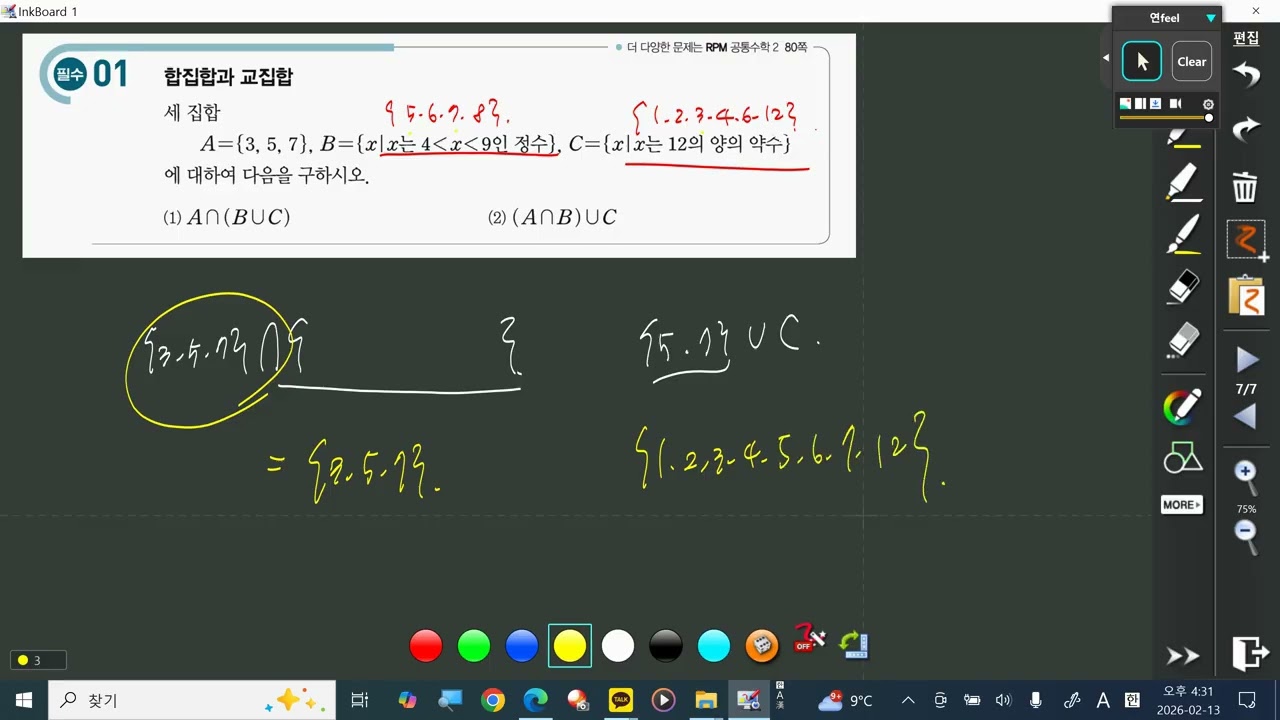 InkBoard 1
연feel
편집
Clear
더 다양한 문제는 RPM 공통수학 2 80쪽
필수 01 합집합과 교집합
세 집합
{5.6.7.8}. {1.2.3.4.6.12}
A={3, 5, 7}, B={x|x는 4<x<9인 정수}, C={x|x는 12의 양의 약수}
에 대하여 다음을 구하시오.
(1) A∩(B∪C) (2) (A∩B)∪C
{3.5.7}∩{ } {5.7}∪C.
= {3.5.7}. {1.2.3.4.5.6.7.12}.
7/7
75%
MORE
OFF
3
찾기
TALK
9+
9°C
A
한
오후 4:31
2026-02-13